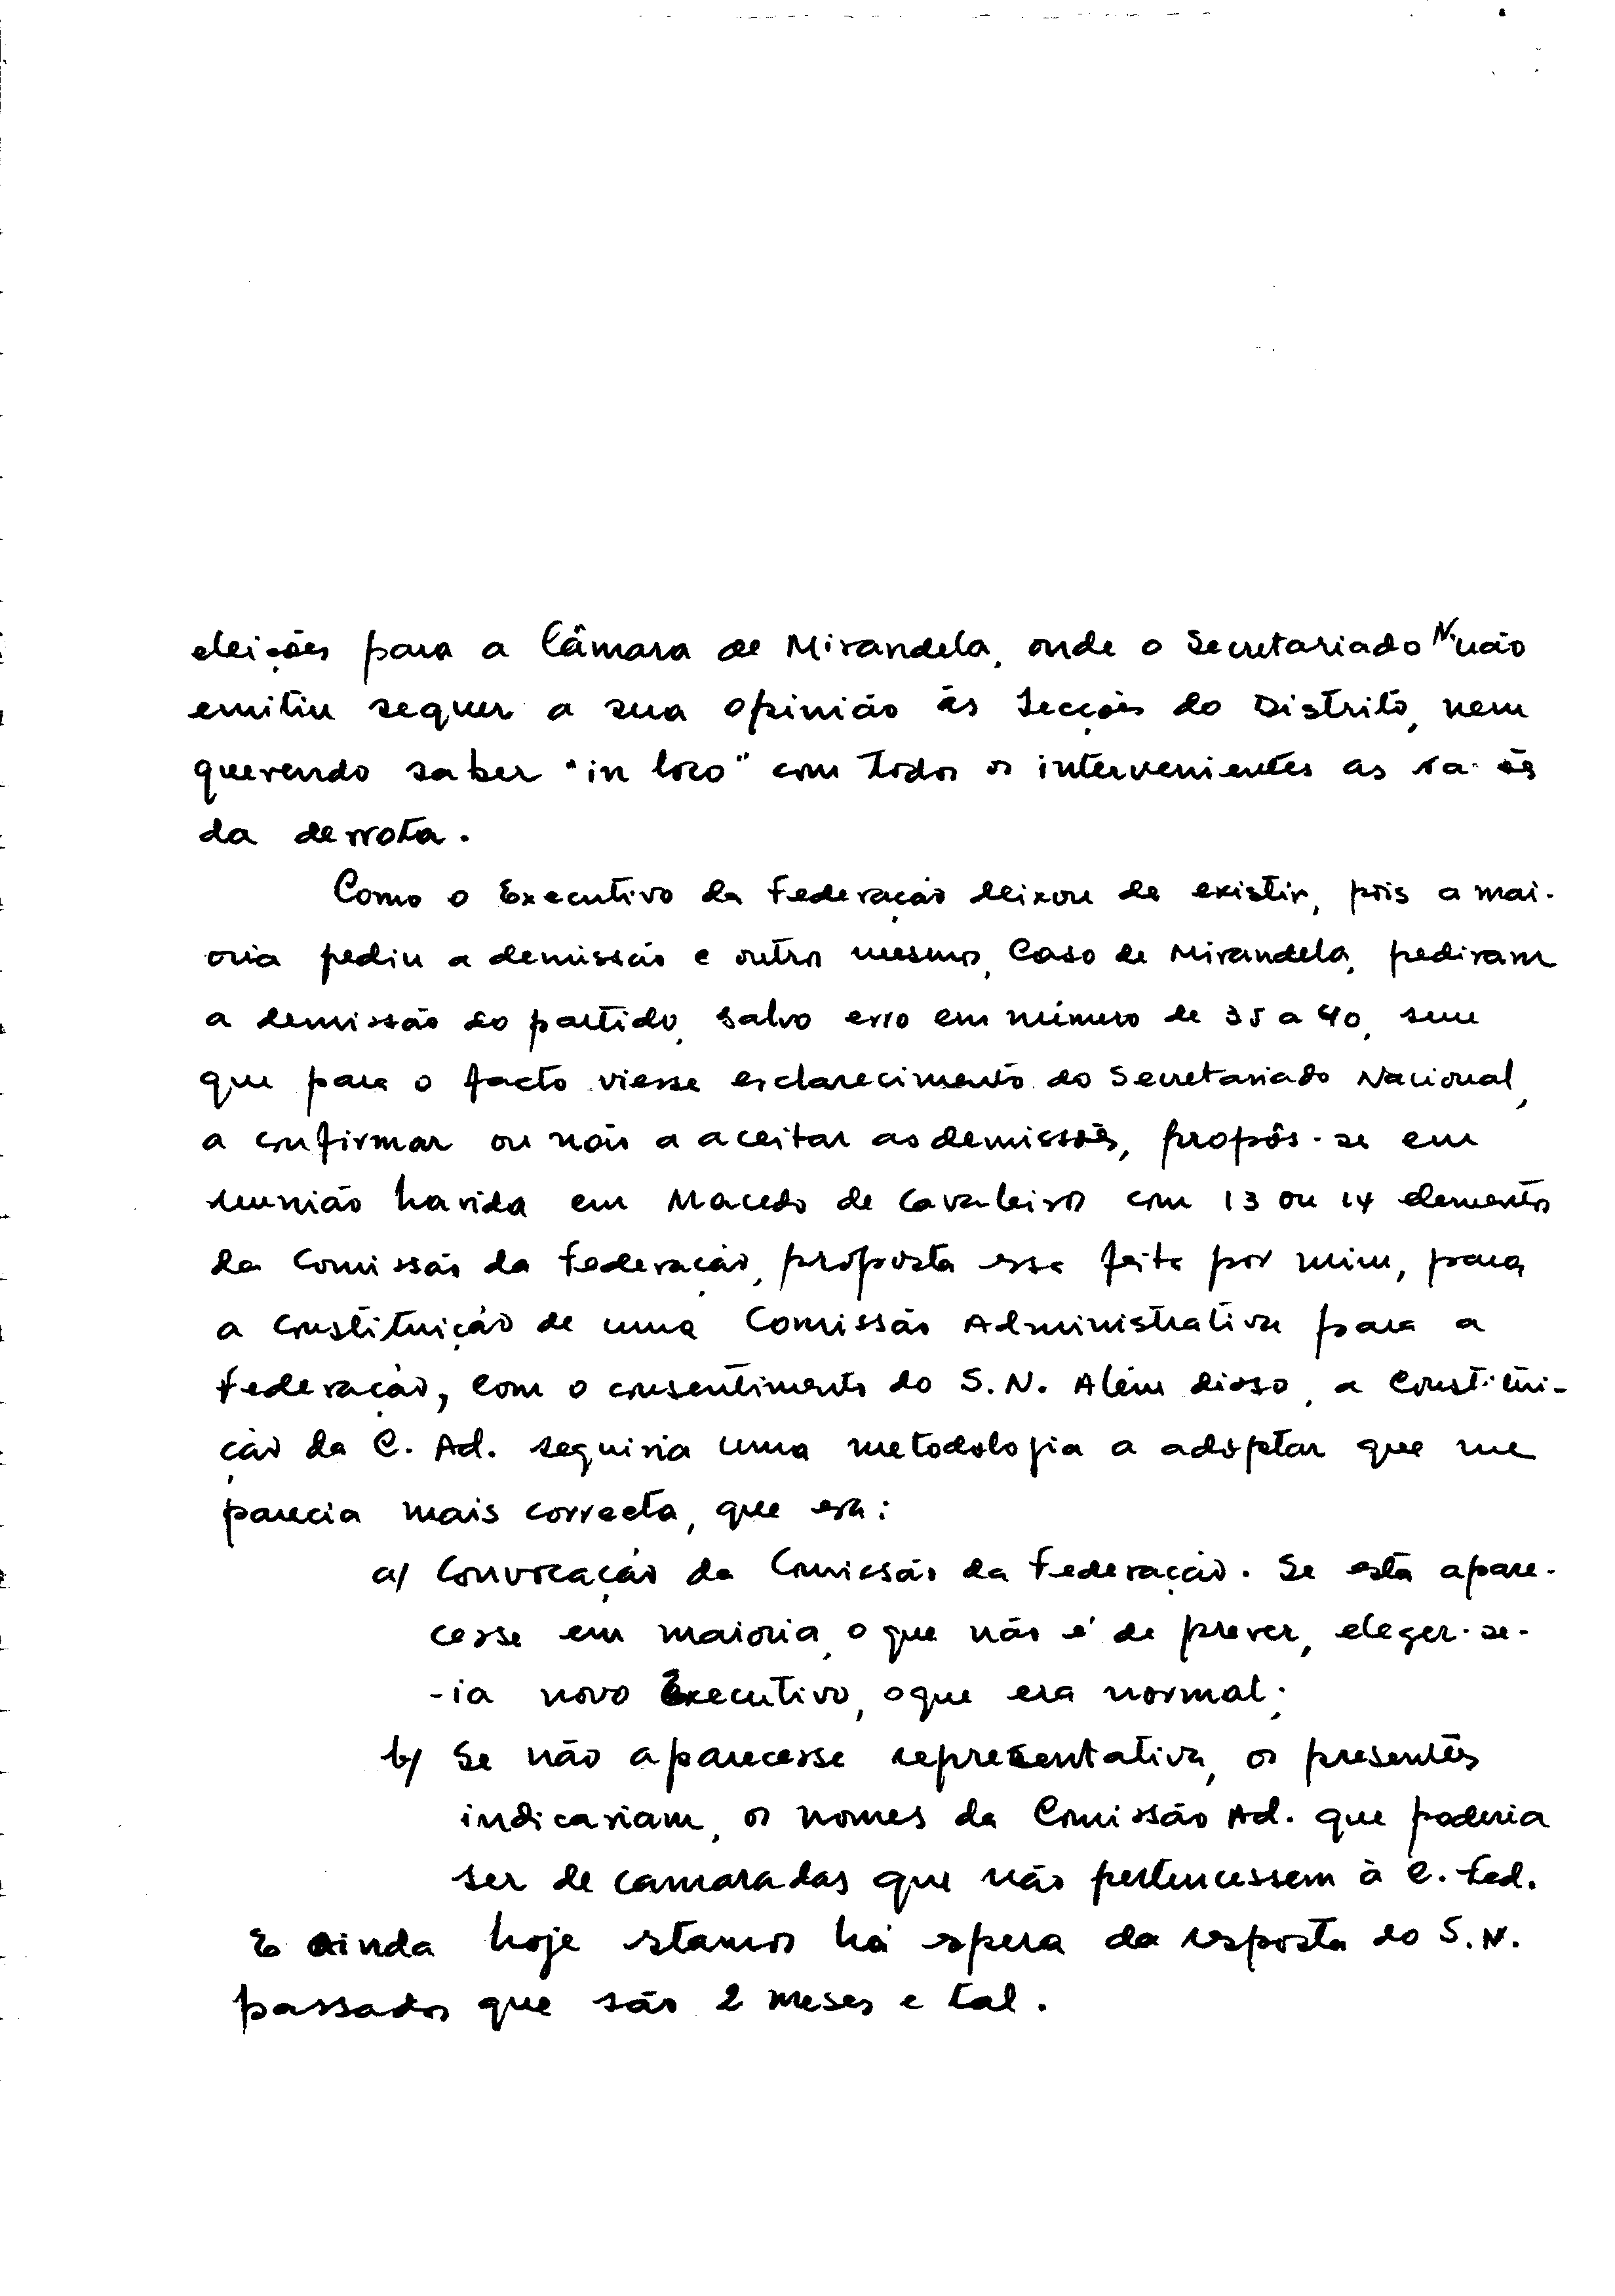 eleições para a Câmara de Mirandela, onde o Secretariado N. não
emitiu sequer a sua opinião às Secções do Distrito, nem
querendo saber "in loco" com todos os intervenientes as
da derrota.
Como o Executivo da Federação deixou de existir, pois a mai-
oria pediu a demissão e outros mesmo, Caso de Mirandela, pediram
a demissão do partido, salvo erro em número de 35 a 40, sem
que para o facto viesse esclarecimento do Secretariado Nacional,
a confirmar ou não a aceitar as demissões, propôs-se em
reunião havida em Macedo de Cavaleiros com 13 ou 14 elementos
da Comissão da Federação, proposta essa feita por mim, para
a constituição de uma Comissão Administrativa para a
Federação, com o consentimento do S. N. Além disso, a Constitui-
ção da C. Ad. seguiria uma metodologia a adoptar que me
parecia mais correcta, que era:
a) Convocação da Comissão da Federação. Se esta apare-
cesse em maioria, o que não é de prever, eleger-se-
-ia novo Executivo, o que era normal;
b) Se não aparecesse representativa, os presentes
indicariam, os nomes da Comissão Ad. que poderia
ser de camaradas que não pertencessem à C. Fed.
E ainda hoje estamos há espera da resposta do S. N.
passados que são 2 meses e tal.